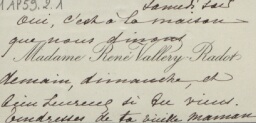 1459.2.1
Samedi, soir
Oui, c'est à la maison
que nous dînons
Madame René Vallery Radot
demain, dimanche, et
bien heureux si tu viens.
Tendresses de ta vieille maman